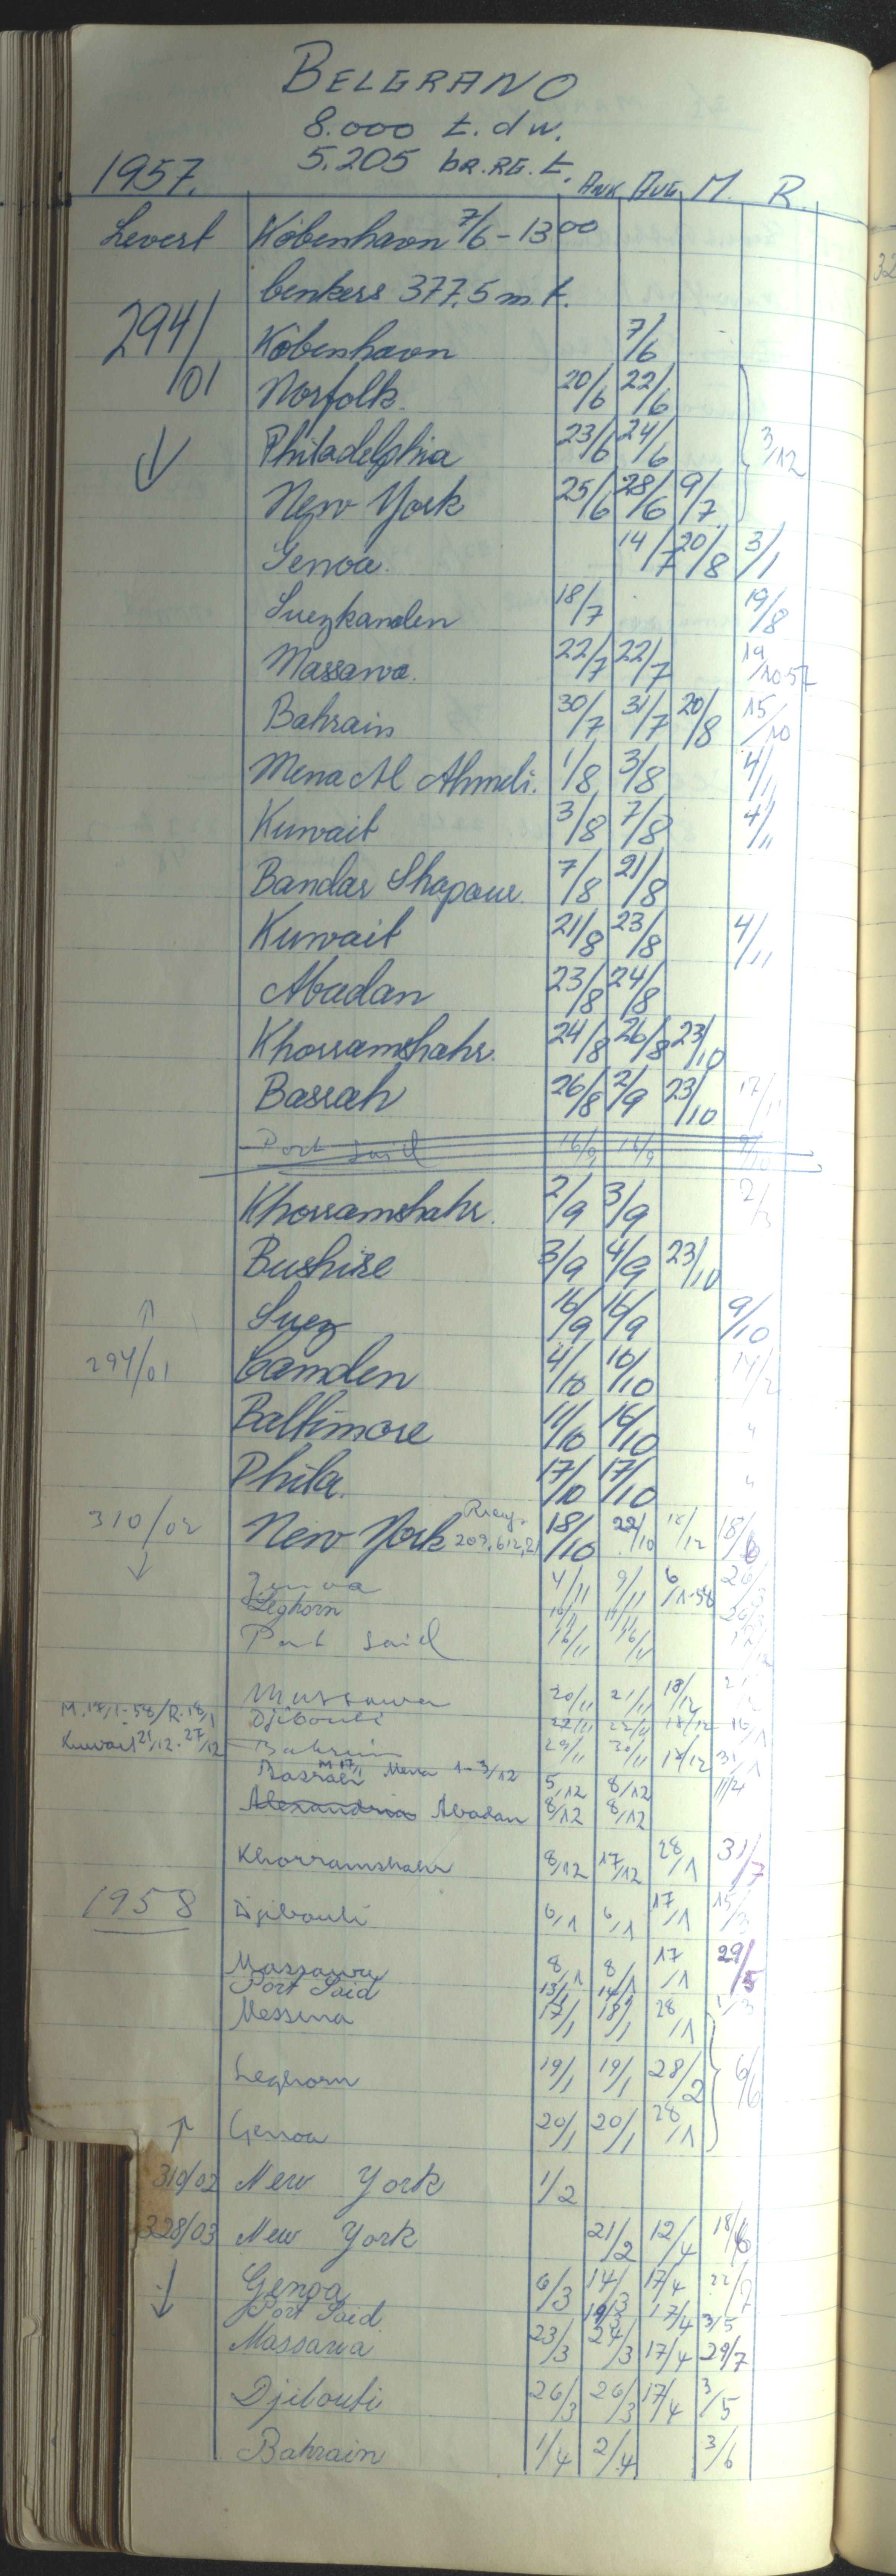 BELGRANO
8.000 t. dw.
1957. 5.205 BR.RG.t. ANK AVG M. R.
Levert København 7/6 - 13 00
bunkers 377,5 m t.
294/01 København 7/6
Norfolk. 20/6 22/6
Philadelphia 23/6 24/6 3/12
New York 25/6 28/6 9/7
Genoa. 14/7 20/8 3/1
Suezkanalen 18/7 19/8
Massawa. 22/7 22/7 19/10-57
Bahrain 30/7 31/7 20/8 15/10
Mena Al Ahmdi. 1/8 3/8 4/11
Kuwait 3/8 7/8 4/11
Bandar Shapour. 7/8 21/8
Kuwait 21/8 23/8 4/11
Abadan 23/8 24/8
Khorramshahr. 24/8 26/8 23/10
Basrah 26/8 2/9 23/10 17/11
Port Said 16/9 16/9 9/10
Khorramshahr. 2/9 3/9 2/3
Bushire 3/9 4/9 23/10
Suez 16/9 16/9 9/10
294/01 Camden 4/10 10/10 14/2
Baltimore 11/10 16/10 "
Phila. 17/10 17/10 "
310/02 New York 209,612,21 18/10 22/10 18/12 18/6
Genoa 4/11 9/11 6/1-58
Leghorn
Port Said 16/11 16/11
Massawa 20/11 21/11 18/12
M. 17/1-58/R. 16/1 Djibouti 22/11 22/11 18/12 16/1
Kuwait 21/12-27/12 Bahrain 29/11 30/11 18/12 31/1
Basrah M 17/1 Mena 1-3/12 5/12 8/12
Alexandria Abadan 8/12 8/12
Khorramshahr 8/12 17/12 28/1 31/7
1958 Djibouti 6/1 6/1 17/1 15/3
Massawa 8/1 8/1 17/1 29/5
Port Said 13/1 14/1
Messina 17/1 18/1 28/1
Leghorn 19/1 19/1 28/2 6/6
Genoa 20/1 20/1 28/1
310/02 New York 1/2
328/03 New York 21/2 12/4 18/6
Genoa 6/3 14/3 17/4 22/7
Port Said 19/3 17/4 3/5
Massawa 23/3 24/3 17/4 29/7
Djibouti 26/3 26/3 17/4 3/5
Bahrain 1/4 2/4 3/6